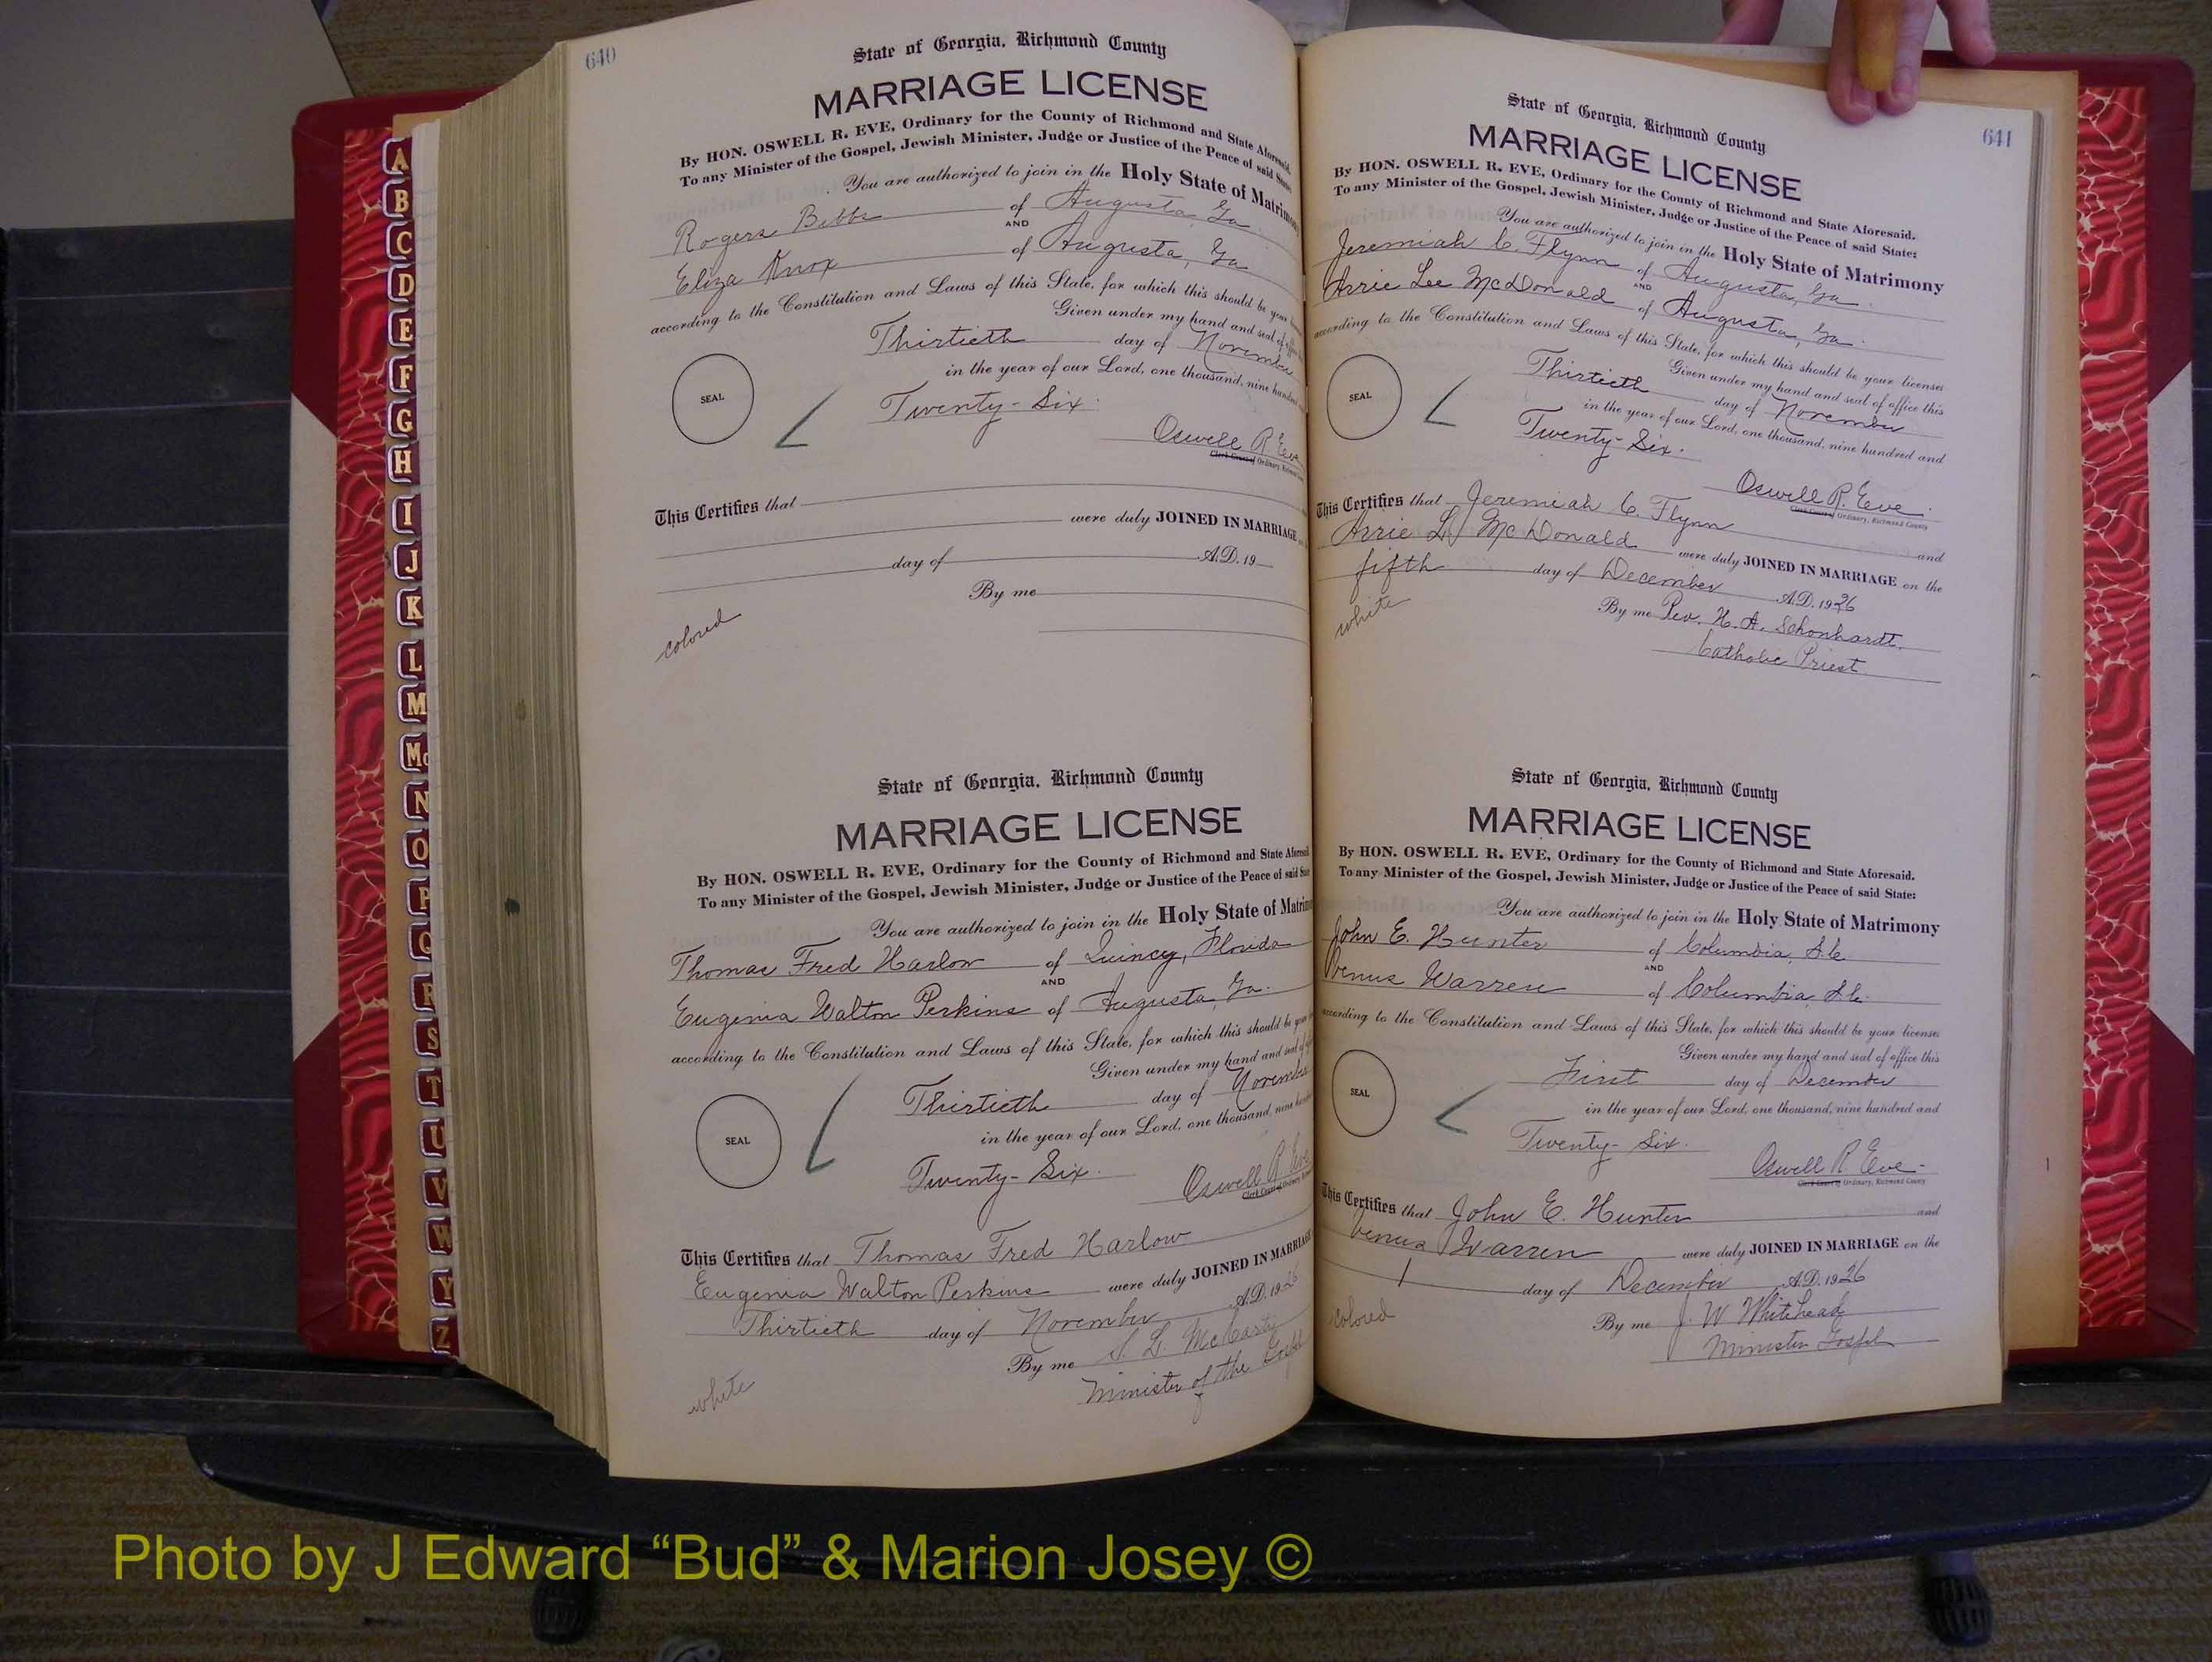 640
State of Georgia, Richmond County
MARRIAGE LICENSE
By HON. OSWELL R. EVE, Ordinary for the County of Richmond and State Aforesaid.
To any Minister of the Gospel, Jewish Minister, Judge or Justice of the Peace of said State:
You are authorized to join in the Holy State of Matrimony
Rogers Bibbs of Augusta Ga
AND
Eliza Knox of Augusta, Ga
according to the Constitution and Laws of this State, for which this should be your
Given under my hand and seal of
Thirtieth day of November
in the year of our Lord, one thousand, nine hundred
SEAL
Twenty-Six.
Oswell R Eve
Clerk Court of Ordinary, Richmond
This Certifies that
were duly JOINED IN MARRIAGE
day of A.D. 19
By me
colored
State of Georgia, Richmond County
MARRIAGE LICENSE
By HON. OSWELL R. EVE, Ordinary for the County of Richmond and State Aforesaid
To any Minister of the Gospel, Jewish Minister, Judge or Justice of the Peace of said State
You are authorized to join in the Holy State of Matrim
Thomas Fred Harlow of Quincy, Florida
AND
Eugenia Walton Perkins of Augusta, Ga.
according to the Constitution and Laws of this State, for which this should be your
Given under my hand and seal of
Thirtieth day of November
in the year of our Lord, one thousand, nine hundred
SEAL
Twenty-Six.
Oswell R Eve
Clerk Court of Ordinary,
This Certifies that Thomas Fred Harlow
Eugenia Walton Perkins were duly JOINED IN MARRIAGE
Thirtieth day of November A.D. 1926
By me S. L. McCarty
Minister of the Gospel
white
641
State of Georgia, Richmond County
MARRIAGE LICENSE
By HON. OSWELL R. EVE, Ordinary for the County of Richmond and State Aforesaid.
To any Minister of the Gospel, Jewish Minister, Judge or Justice of the Peace of said State:
You are authorized to join in the Holy State of Matrimony
Jeremiah C. Flynn of Augusta, Ga.
AND
Arrie Lee McDonald of Augusta, Ga.
according to the Constitution and Laws of this State, for which this should be your licenses
Given under my hand and seal of office this
Thirtieth day of November
in the year of our Lord, one thousand, nine hundred and
SEAL
Twenty-Six.
Oswell R. Eve.
Clerk Court of Ordinary, Richmond County
This Certifies that Jeremiah C. Flynn and
Arrie L. McDonald were duly JOINED IN MARRIAGE on the
fifth day of December A.D. 1926
By me Rev. H. A. Schonhardt.
Catholic Priest.
white
State of Georgia, Richmond County
MARRIAGE LICENSE
By HON. OSWELL R. EVE, Ordinary for the County of Richmond and State Aforesaid.
To any Minister of the Gospel, Jewish Minister, Judge or Justice of the Peace of said State:
You are authorized to join in the Holy State of Matrimony
John E. Hunter of Columbia, S.C.
AND
Venus Warren of Columbia S.C.
according to the Constitution and Laws of this State, for which this should be your licenses
Given under my hand and seal of office this
First day of December
in the year of our Lord, one thousand, nine hundred and
SEAL
Twenty-Six.
Oswell R Eve-
Clerk Court of Ordinary, Richmond County
This Certifies that John E. Hunter and
Venus Warren were duly JOINED IN MARRIAGE on the
1 day of December A.D. 1926
By me J. W Whitehead
Minister Gospel
colored
A
B
C
D
E
F
G
H
I
J
K
L
M
Mc
N
O
P
Q
R
S
T
U
V
W
Y
Z
Photo by J Edward “Bud” & Marion Josey ©